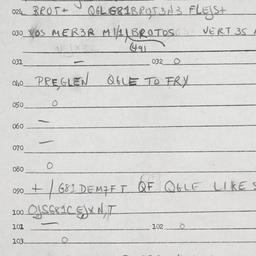 024 3POT+ Q6LG81BPQT3N3 FLEJS+
030 VOS MER3R M1/1/BROTOS VERT 3S
(491
031 — 032 O
040 PREGLEN Q6LE TO FRY
050 O
060 —
070 —
080 O
090 + / G81 DEM7FT QF Q6LE LIKES
100 OJSG81C EJXN,T
101 — 102 O
103 O